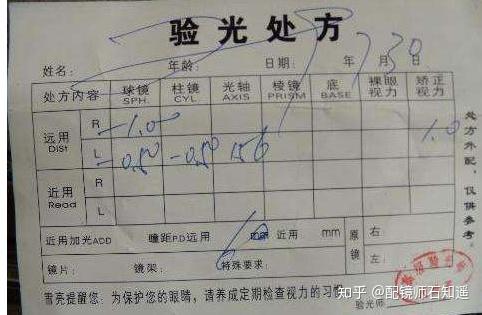 验光处方
姓名: 年龄: 日期: 年 7月30日
处方内容 球镜 SPH. 柱镜 CYL 光轴 AXIS 棱镜 PRISM 底 BASE 裸眼视力 矫正视力
远用 DISt R -1.00 1.0
L -0.50 -0.50 156
近用 Read R
L
近用加光ADD 瞳距PD远用 近用 mm 原镜 右
镜片: 镜架: 特殊要求: 左:
雪亮提醒您: 为保护您的眼睛,请养成定期检查视力的习惯 验光师
处方外配,仅供参考。
知乎 @配镜师石知遥